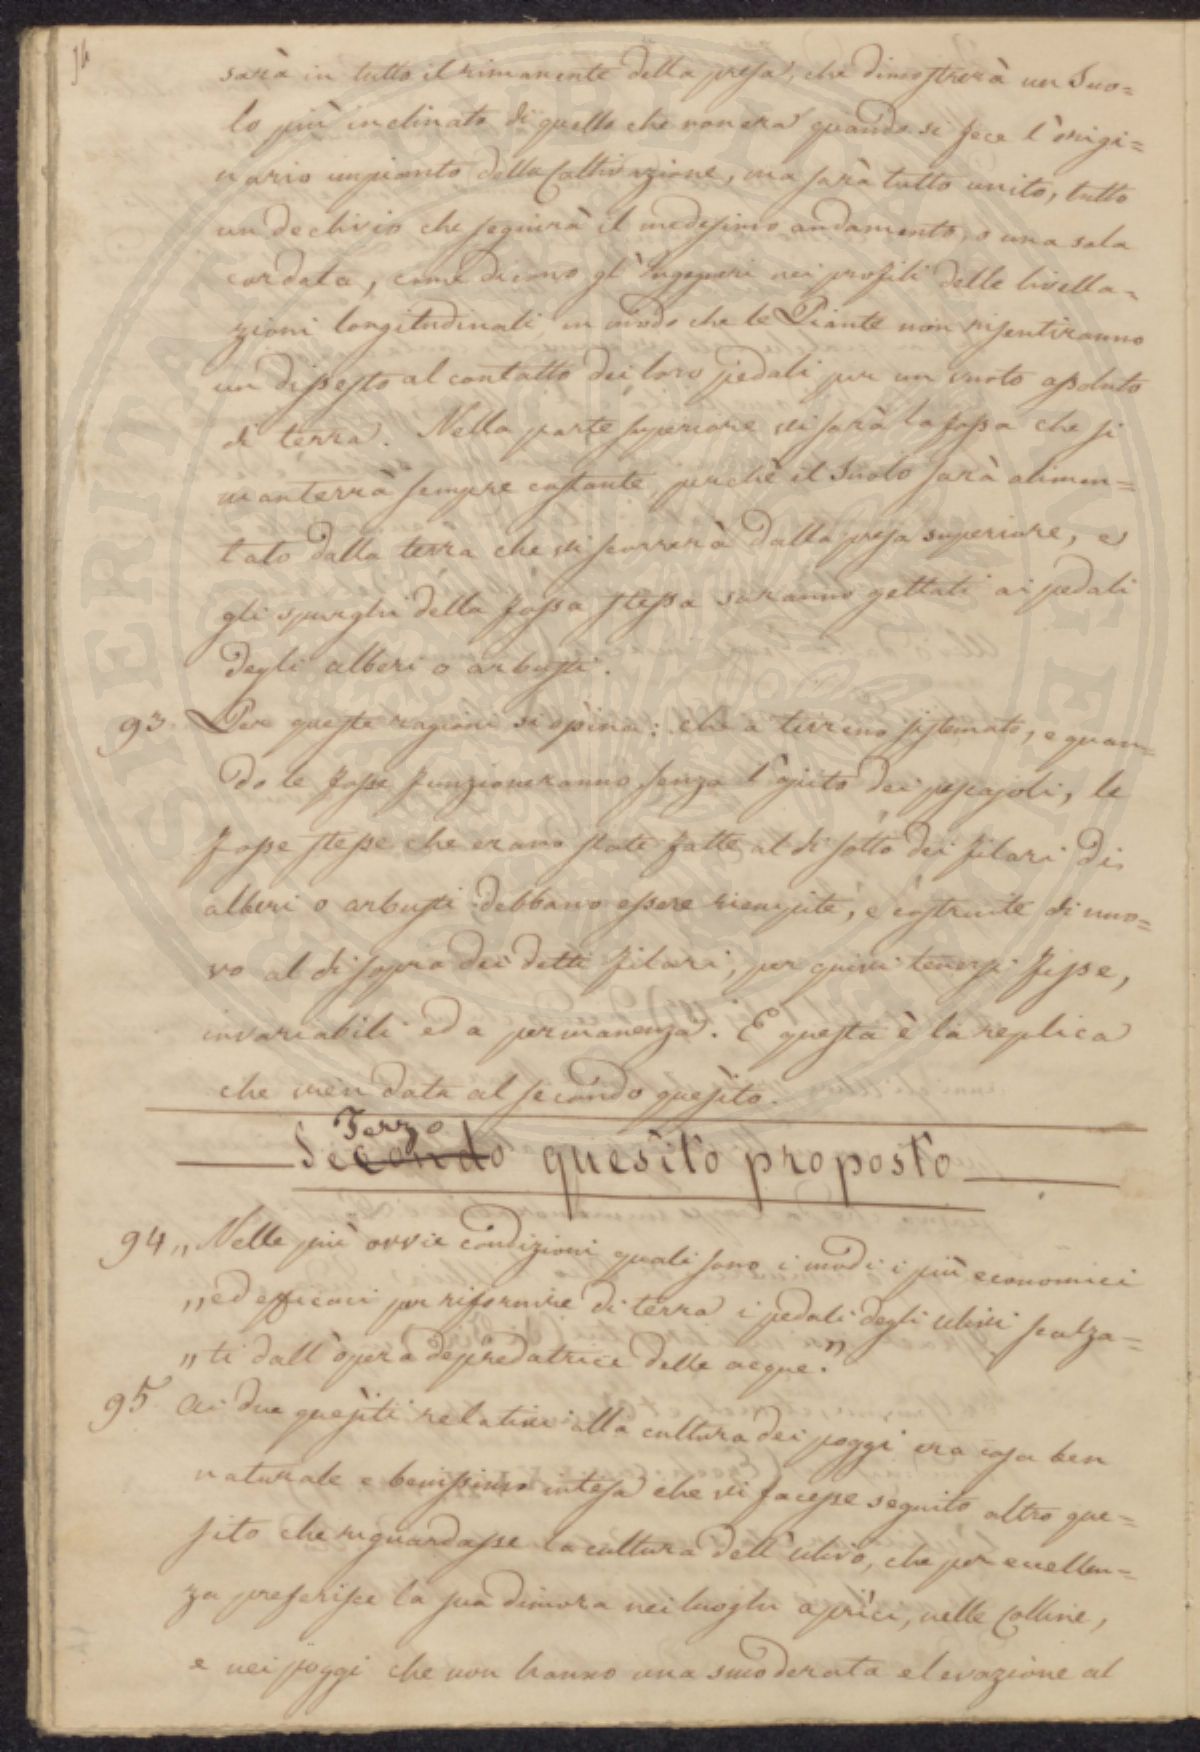 94
sarà in tutto il rimanente della presa, che dimostrerà un Suo=
lo più inclinato di quello che non era quando si fece l'origi=
nario impianto della Coltivazione, ma sarà tutto unito, tutto
un declivio che seguirà il medesimo andamento, o una sola
cordata, come dicono gl'Ingegneri nei profili delle livella=
zioni longitudinali in modo che le Piante non risentiranno
un dissesto al contatto dei loro pedali per un vuoto assoluto
di terra. Nella parte superiore vi sarà la fossa che si
manterrà sempre costante, perchè il Suolo sarà alimen=
tato dalla terra che vi scorrerà dalla presa superiore, e
gli spurghi della fossa stessa saranno gettati ai pedali
degli alberi o arbusti.
93. Per queste ragioni si opina: che a terreno sistemato, e quan=
do le fosse funzioneranno senza l'ajuto dei pescajoli, le
fosse stesse che erano state fatte al di sotto dei filari di
alberi o arbusti debbano essere riempite, e costruite di nuo=
vo al di sopra dei detti filari, per quivi tenersi fisse,
invariabili ed a permanenza. E questa è la replica
che vien data al secondo quesito.
Terzo
Secondo quesito proposto
94 „ Nelle più ovvie condizioni quali sono i modi i più economici
„ ed efficaci per rifornire di terra i pedali degli ulivi scalza=
„ ti dall'opera depredatrice delle acque.„
95 Ai due quesiti relativi alla cultura dei poggi era cosa ben
naturale e benissimo intesa che vi facesse seguito altro que=
sito che riguardasse la cultura dell'ulivo, che per eccellen=
za preferisce la sua dimora nei luoghi aprici, nelle Colline,
e nei poggi che non hanno una smoderata elevazione al